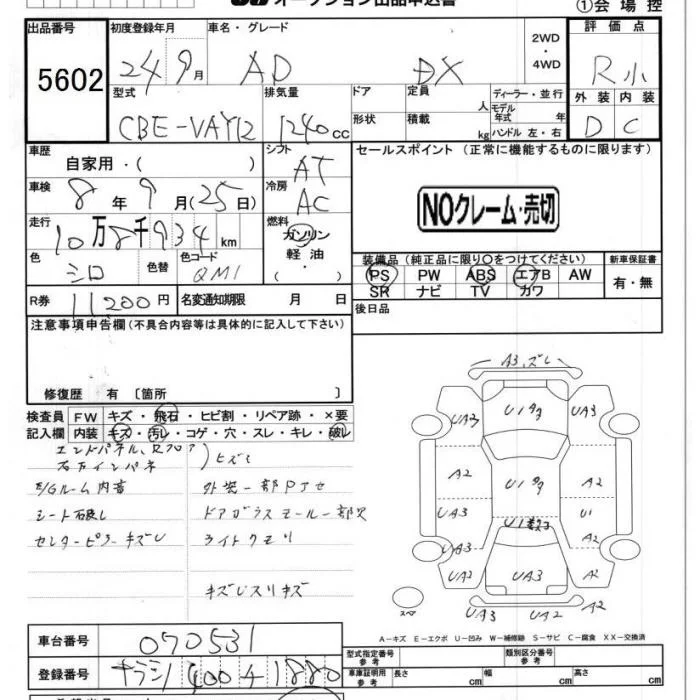 オークション出品申込書
①会場控
出品番号 初度登録年月 車名・グレード 2WD・4WD 評価点
5602 24 9月 AD DX R小
型式 排気量 ドア 定員 人 ディーラー・並行
CBE-VAY12 1240cc 形状 積載 kg モデル年式 年 ハンドル 左・右
外装 内装
D C
車歴 自家用・( ) シフト AT
セールスポイント(正常に機能するものに限ります)
車検 8年9月(25日) 冷房 AC
NOクレーム・売切
走行 10万8千934km 燃料 ガソリン 軽油・( )
色 シロ 色替 色コード QM1
装備品(純正品に限り〇をつけてください) 新車保証書
PS PW ABS エアB AW 有・無
SR ナビ TV カワ
R券 11200円 名変通知期限 月 日
後日品
注意事項申告欄(不具合内容等は具体的に記入して下さい)
修復歴 有 〔箇所 〕
検査員記入欄
FW キズ・飛石・ヒビ割・リペア跡・×要
内装 キズ・汚レ・コゲ・穴・スレ・キレ・破レ
エンドパネル、Rフロア
ヒズミ
E/Gルーム内音 外装一部Pナセ
シート破レ ドアガラスモール一部欠
センターピラーキズU ライトクモリ
キズ
A3、ズレ
UA2 UA3
A2 A2
UA3 U1
UA3 A2
UA2 UA3 A2
スペア
UA3 UA2 A2
A-キズ E-エクボ U-凹み W-補修跡 S-サビ C-腐食 XX-交換済
車台番号 070531
型式指定番号 参考 類別区分番号 参考
登録番号 400 1880
車庫証明用 参考 長さ cm 幅 cm 高さ cm